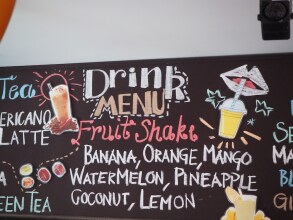 Tea
ERICANO
LATTE
EEN TEA
Drink
MENU
Fruit Shake
BANANA, ORANGE, MANGO
WATERMELON, PINEAPPLE
COCONUT, LEMON